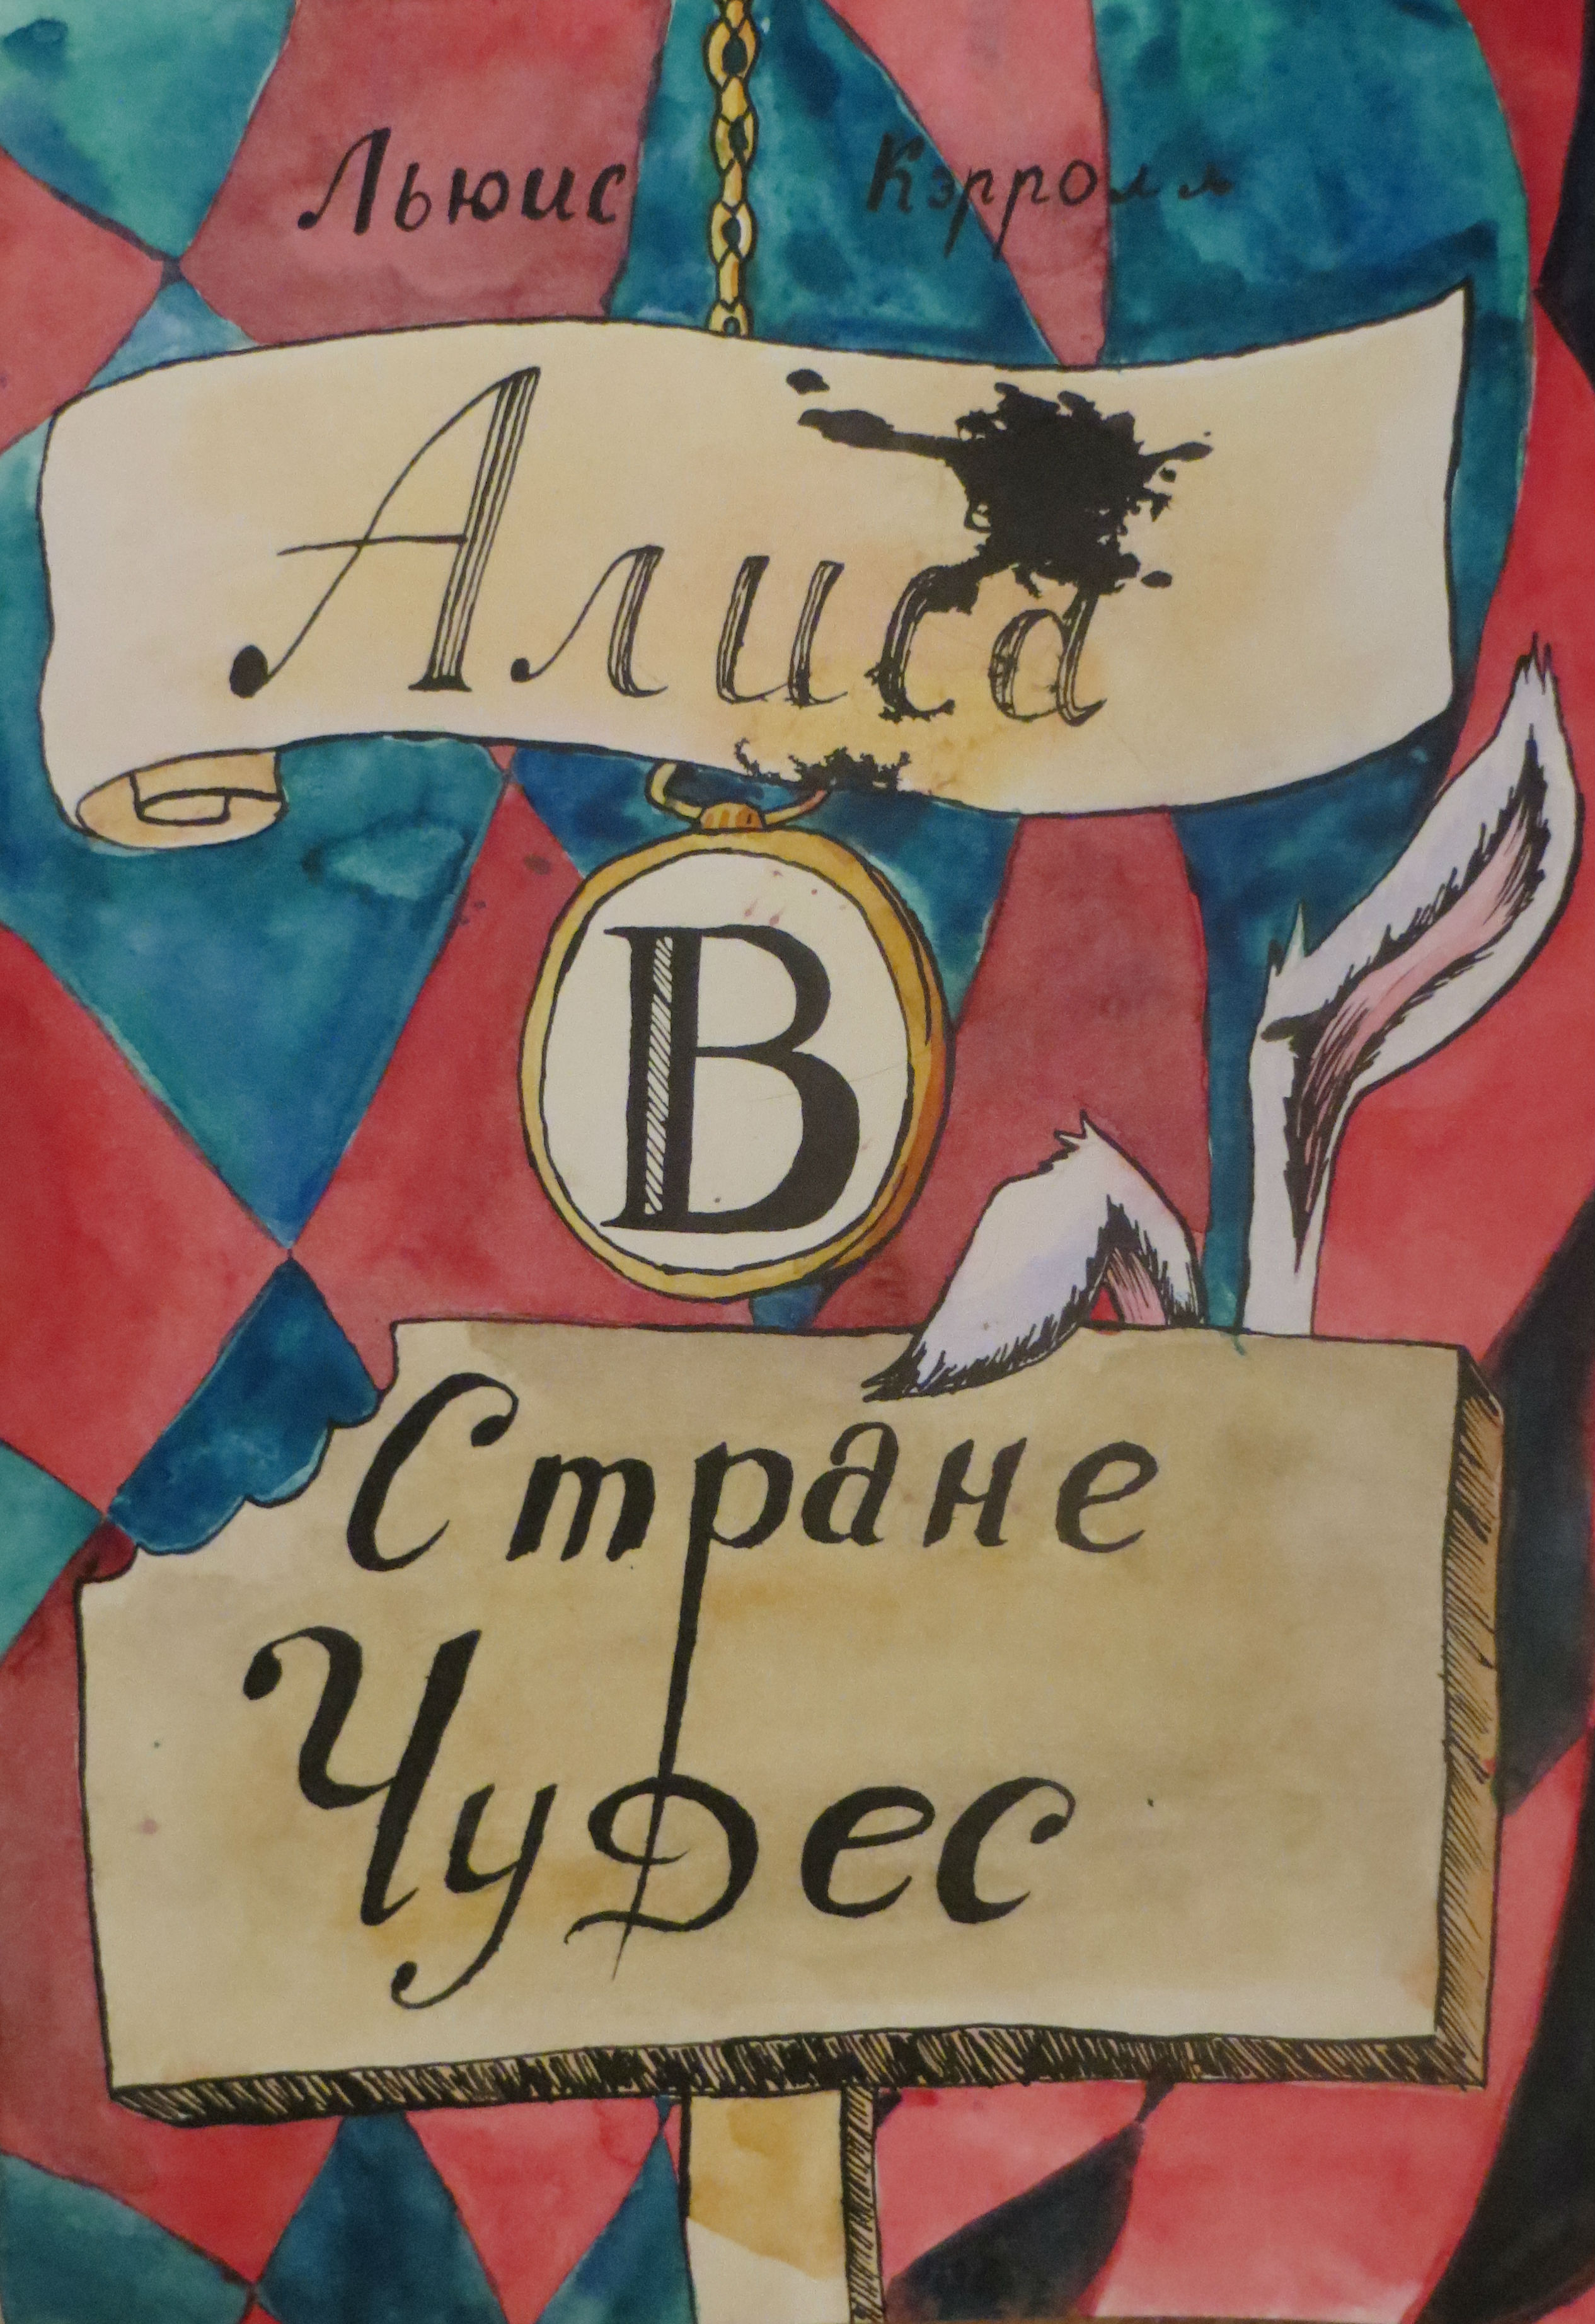 Льюис Кэрролл
Алиса
В
Стране
Чудес